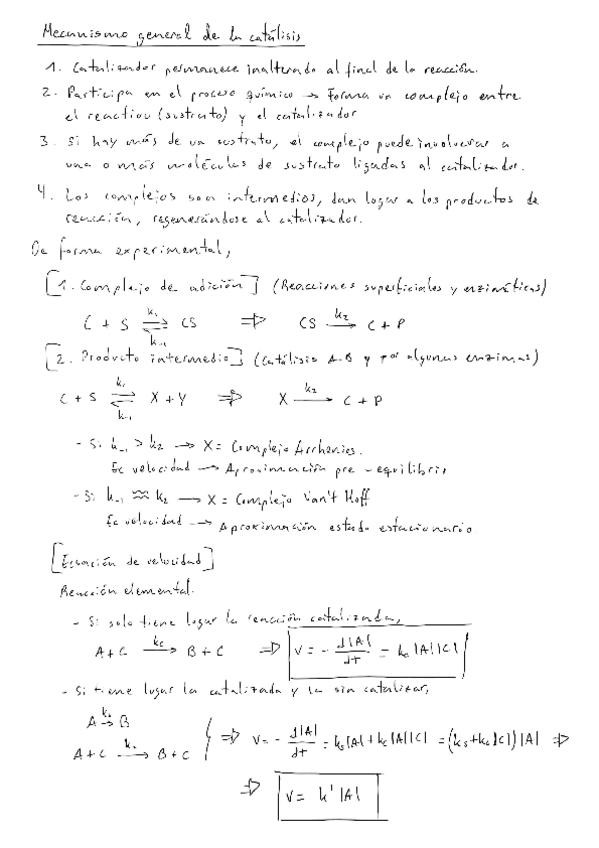 Mecanismo general de la catálisis
1. Catalizador permanece inalterado al final de la reacción.
2. Participa en el proceso químico → Forma un complejo entre
el reactivo (sustrato) y el catalizador
3. Si hay más de un sustrato, el complejo puede involucrar a
una o más moléculas de sustrato ligadas al catalizador.
4. Los complejos son intermedios, dan lugar a los productos de
reacción, regenerándose al catalizador.
De forma experimental,
[1. Complejo de adición] (Reacciones superficiales y enzimáticas)
C + S ⇌ CS ⇒ CS → C + P
k₁ k₋₁ k₂
[2. Producto intermedio] (Catálisis A-B y por algunas enzimas)
C + S ⇌ X + Y ⇒ X → C + P
k₁ k₋₁ k₂
- Si k₋₁ > k₂ → X = Complejo Arrhenius.
Ec velocidad → Aproximación pre-equilibrio
- Si k₋₁ ≈ k₂ → X = Complejo Van't Hoff
Ec velocidad → Aproximación estado estacionario
[Ecuación de velocidad]
Reacción elemental.
- Si solo tiene lugar la reacción catalizada,
A + C →kc B + C ⇒ v = - d|A|/dt = kc |A||C|
- Si tiene lugar la catalizada y la sin catalizar,
A → B
A + C → B + C
⇒ v = - d|A|/dt = ks|A| + kc|A||C| = (ks + kc|C|) |A| ⇒
⇒ v = k' |A|